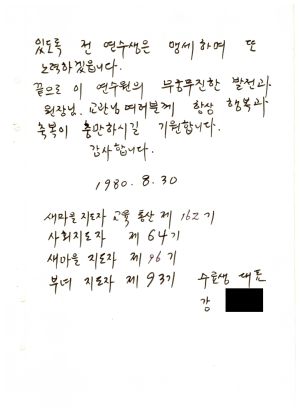 있도록 전 연수생은 맹세하며 또
노력하겠읍니다.
끝으로 이 연수원의 무궁무진한 발전과
원장님, 교관님 여러분께 항상 행복과
축복이 충만하시길 기원합니다.
감사합니다.
1980. 8. 30
새마을 지도자 교육 통산 제 162기
사회지도자 제 64기
새마을 지도자 제 96기
부녀 지도자 제 93기 수료생 대표
강